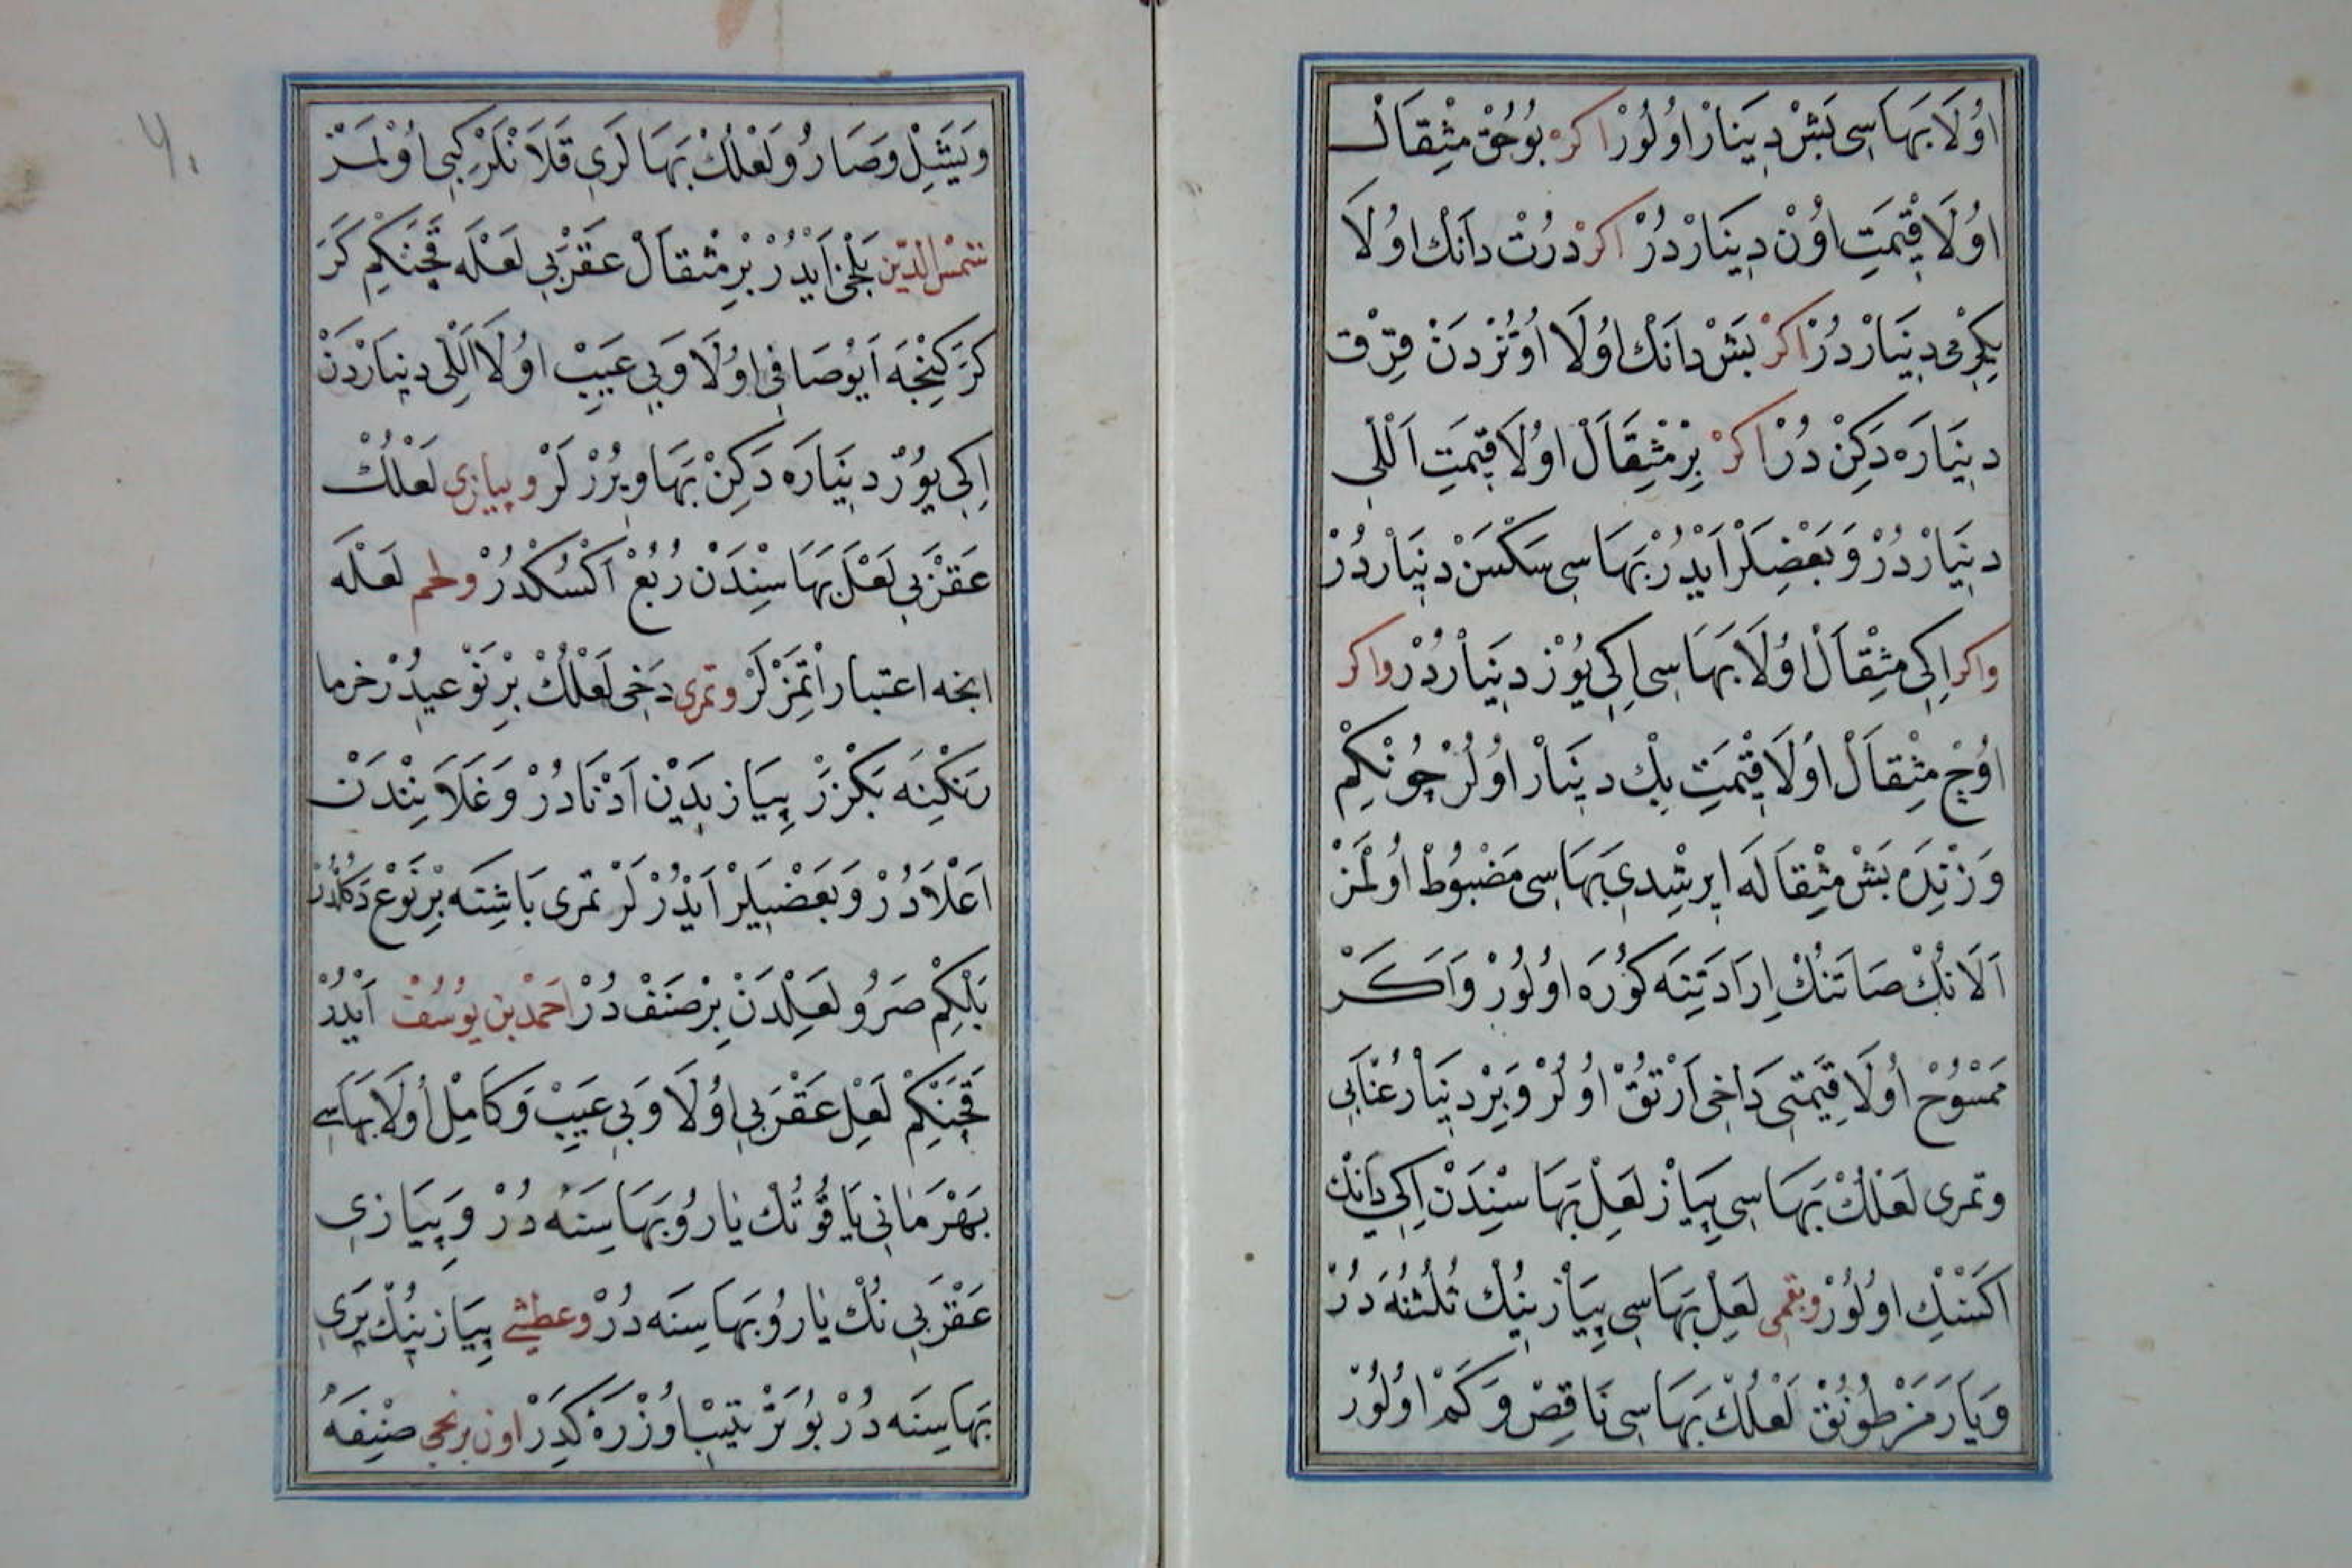 اُولَا بَهَاسِى بَشْ دِينَارْ اُولُورْ اكَرْ بُوچُقْ مِثْقَالْ
اُولَا قِيْمَتِ اُونْ دِينَارْدُرْ اكَرْ دُرْتْ دَانَكْ اُولَا
يِكِرْمِى دِينَارْدُرْ اكَرْ بَشْ دَانَكْ اُولَا اُوتُزْدَنْ قِرْقْ
دِينَارَه دَكِنْ دُرْ اكَرْ بِرْ مِثْقَالْ اُولَا قِيمَتِ اَللِّى
دِينَارْدُرْ وَبَعْضِلَرْ اَيْدُرْ بَهَاسِى سَكْسَنْ دِينَارْدُرْ
واكر اِكِى مِثْقَالْ اُولَا بَهَاسِى اِكِى يُوزْ دِينَارْدُرْ واكر
اُوچْ مِثْقَالْ اُولَا قِيْمَتِ بِكْ دِينَارْ اُولُرْ چُونْكِمْ
وَزْنِدَه بَشْ مِثْقَالَه اِيرِشْدِى بَهَاسِى مَضْبُوطْ اُولْمَزْ
اَلَانِكْ صَاتَنُكْ اِرَادَتِنَه كُورَه اُولُورْ وَاَكَرْ
مَمْسُوحْ اُولَا قِيمَتِى دَاخِى اَرْتُقْ اُولُرْ وَبِرْ دِينَارْ عُنَّابِى
وتمرى لَعْلُكْ بَهَاسِى پِيَازْ لَعِلْ بَهَاسِنْدَنْ اِكِى دَانَكْ
اَكْسِكْ اُولُورْ وبقمى لَعِلْ بَهَاسِى پِيَازِينُكْ ثُلُثُنَه دُرْ
وَيَارَمَزْ طُونُقْ لَعْلُكْ بَهَاسِى نَاقِصْ وَكَمْ اُولُورْ
وَيَشِلْ وَصَارُو لَعْلُكْ بَهَالَرِى قَلَانْلَرْ كِبِى اُولْمَزْ
شمس الدّين بَلْخِى اَيْدُرْ بِرْ مِثْقَالْ عَقْرَبِى لَعْلَه قَچَنْكِمْ كَرَ
كَرْ كِنْجَه اَيُو صَافِى اُولَا وَبِى عَيِبْ اُولَا اَللِّى دِينَارْدَنْ
اِكِى يُوزْ دِينَارَه دَكِنْ بَهَا وِيرُرْلَرْ وپيازى لَعْلُكْ
عَقْرَبِى لَعْلْ بَهَاسِنْدَنْ رُبُعْ اَكْسُكْدُرْ ولحم لَعْلَه
انجه اعتبار اتْمَزْلَرْ وتمرى دَخِى لَعْلُكْ بِرْ نَوْعِيدُرْ خرما
رَنْكِنَه بَكْزَرْ پِيَازِيدَيْن اَدْنَادُرْ وَغَلَانِنْدَنْ
اَعْلَادُرْ وَبَعْضِيلَرْ اَيْدُرْلَرْ تمرى بَاشِنَه بِرْ نَوْعْ دَكُلْدُرْ
بَلْكِمْ صَرُو لَعِلْدَنْ بِرْ صَنَفْ دُرْ اَحْمَدْ بن يُوسُفْ اَيْدُرْ
قَچَنْكِمْ لَعِلْ عَقْرَبِى اُولَا وَبِى عَيِبْ وَكَامِلْ اُولَا بَهَاسِى
بَهْرَمَانِى يَاقُوتُكْ يَارُو بَهَاسِنَه دُرْ وَپِيَازِى
عَقْرَبِى نُكْ يَارُو بَهَاسِنَه دُرْ وعطشى پِيَازِينُكْ يَرِى
بَهَاسِنَه دُرْ بُو تَرْتِيبْ اُوزْرَه كِدَرْ اون برنجى صِنِفَه